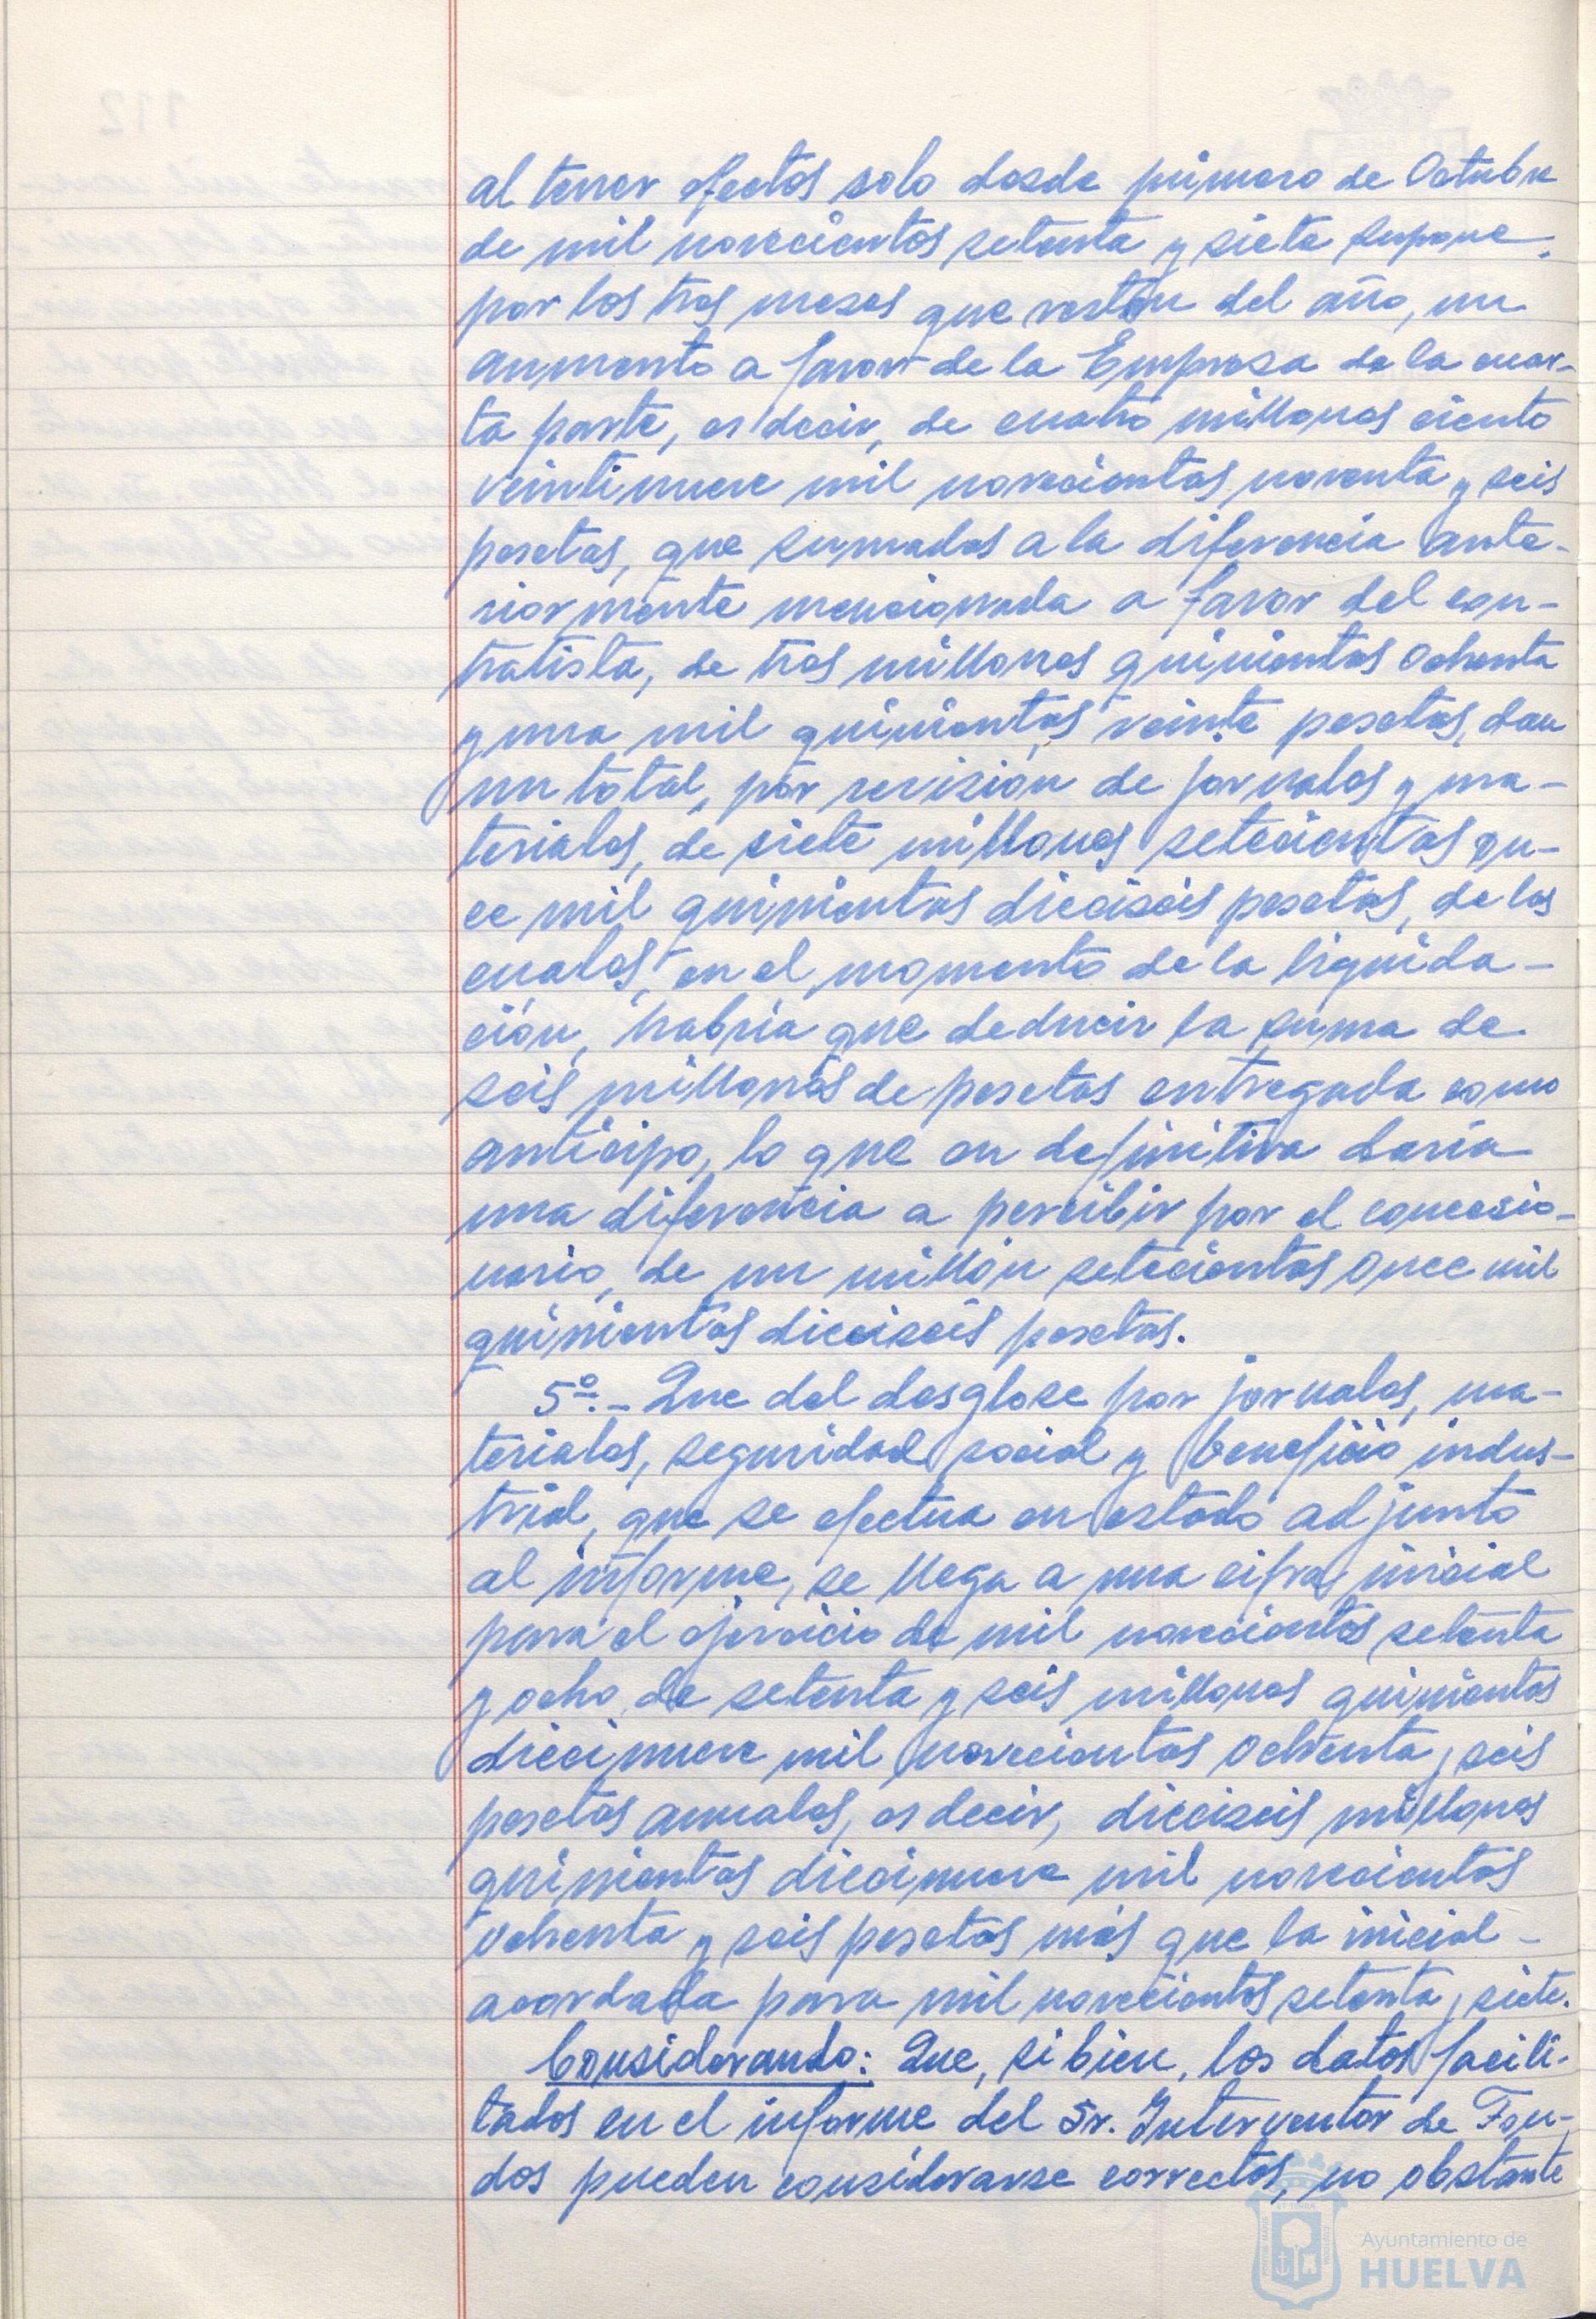 al tener efectos solo desde primero de Octubre
de mil novecientos setenta y siete supone.
por los tres meses que restan del año, un
aumento a favor de la Empresa de la cuar-
ta parte, es decir, de cuatro millones ciento
veintinueve mil novecientas noventa y seis
pesetas, que sumados a la diferencia ante-
riormente mencionada a favor del con-
tratista, de tres millones quinientas ochenta
y una mil quinientas veinte pesetas, dan
un total, por revisión de jornales y ma-
teriales, de siete millones setecientas on-
ce mil quinientas dieciseis pesetas, de los
cuales, en el momento de la liquida-
ción, habría que deducir la suma de
seis millones de pesetas entregada como
anticipo, lo que en definitiva daría
una diferencia a percibir por el concesio-
nario, de un millón setecientas once mil
quinientas dieciseis pesetas.
5º.- Que del desglose por jornales, ma-
teriales, seguridad social y beneficio indus-
trial, que se efectua en estado adjunto
al informe, se llega a una cifra inicial
para el ejercicio de mil novecientos setenta
y ocho, de setenta y seis millones quinientas
diecinueve mil novecientas ochenta y seis
pesetas anuales, es decir, dieciseis millones
quinientas diecinueve mil novecientas
ochenta y seis pesetas más que la inicial-
acordada para mil novecientos setenta y siete.
Considerando: Que, si bien, los datos facili-
tados en el informe del Sr. Interventor de Fon-
dos pueden considerarse correctos, no obstante
Ayuntamiento de
HUELVA